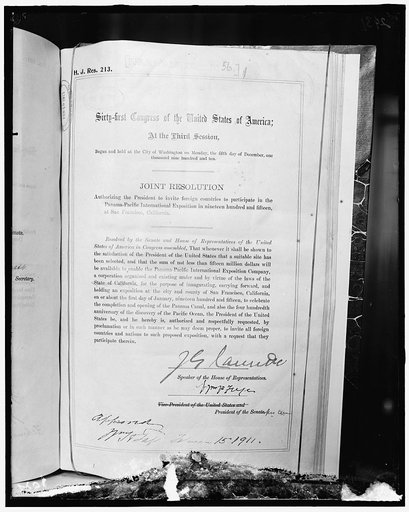 H. J. Res. 213.
56
Sixty-first Congress of the United States of America;
At the Third Session,
Begun and held at the City of Washington on Monday, the fifth day of December, one
thousand nine hundred and ten.
JOINT RESOLUTION
Authorizing the President to invite foreign countries to participate in the
Panama-Pacific International Exposition in nineteen hundred and fifteen,
at San Francisco, California.
Resolved by the Senate and House of Representatives of the United
States of America in Congress assembled, That whenever it shall be shown to
the satisfaction of the President of the United States that a suitable site has
been selected, and that the sum of not less than fifteen million dollars will
be available to enable the Panama-Pacific International Exposition Company,
a corporation organized and existing under and by virtue of the laws of the
State of California, for the purpose of inaugurating, carrying forward, and
holding an exposition at the city and county of San Francisco, California,
on or about the first day of January, nineteen hundred and fifteen, to celebrate
the completion and opening of the Panama Canal, and also the four hundredth
anniversary of the discovery of the Pacific Ocean, the President of the United
States be, and he hereby is, authorized and respectfully requested, by
proclamation or in such manner as he may deem proper, to invite all foreign
countries and nations to such proposed exposition, with a request that they
participate therein.
J G Cannon
Speaker of the House of Representatives.
Wm P Frye
Vice-President of the United States and
President of the Senate
Approved
Wm H Taft
15 1911.
Secretary.